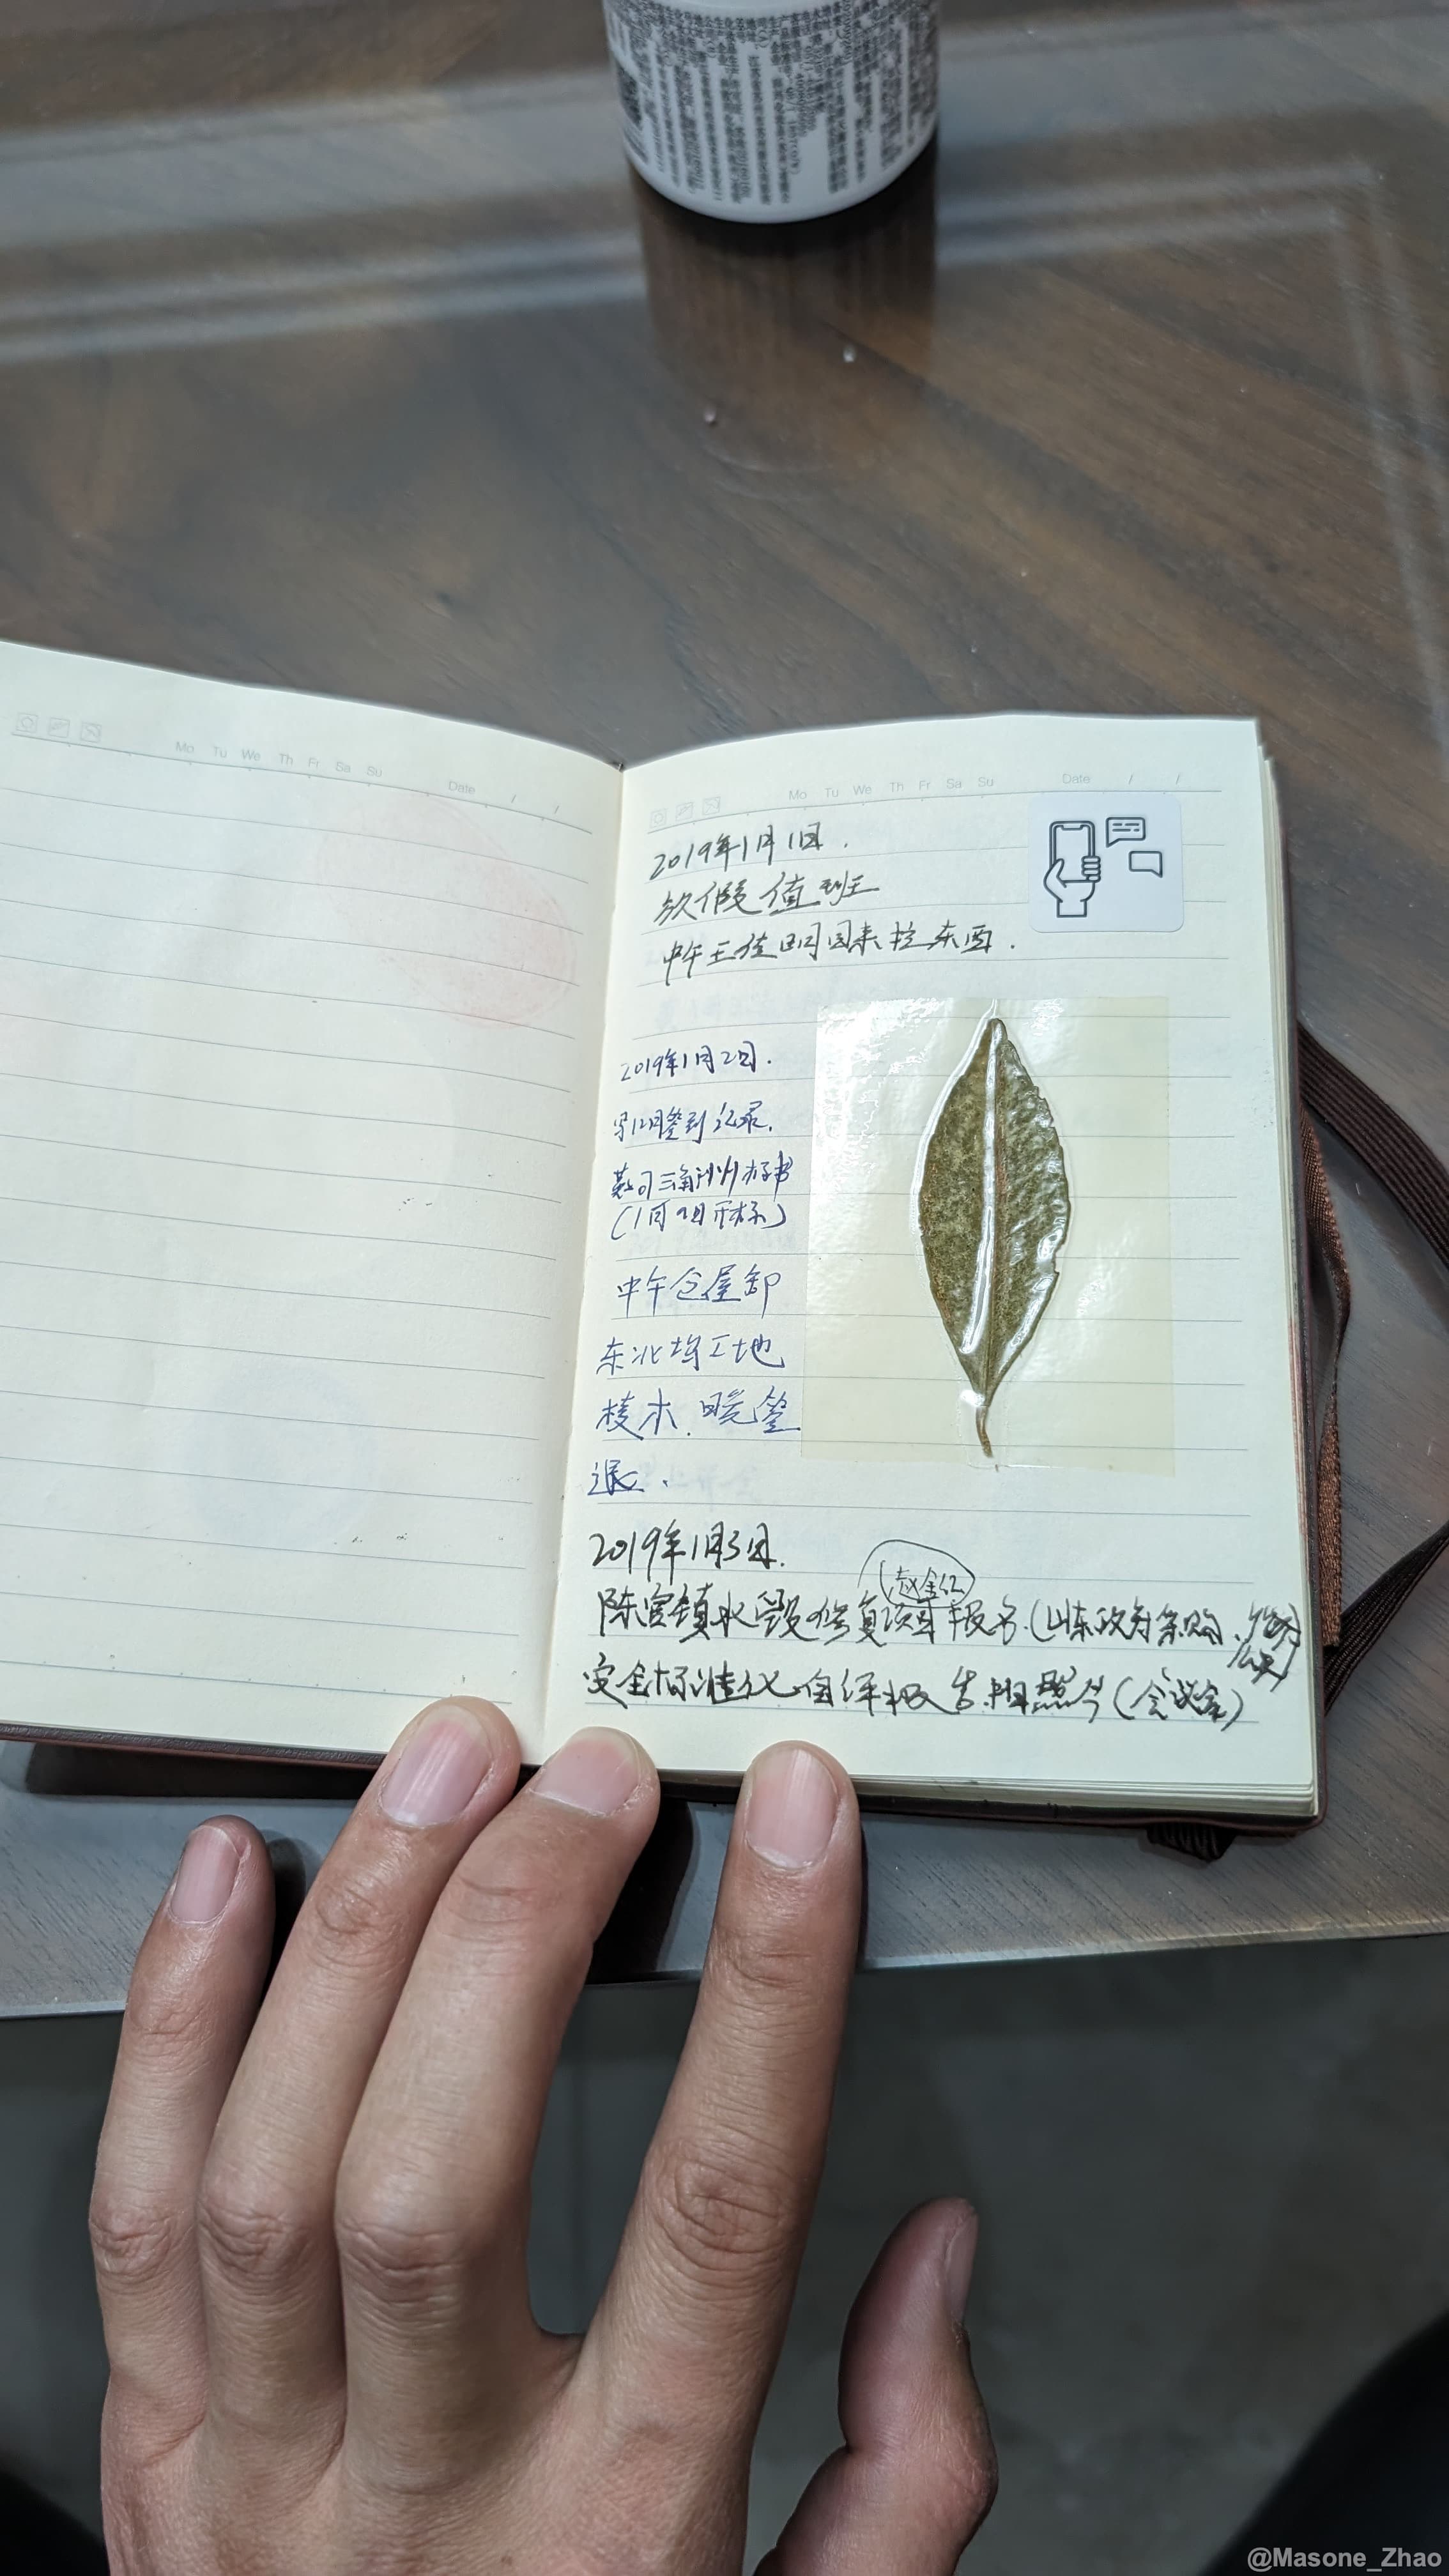 Mo Tu We Th Fr Sa Su Date / /
Mo Tu We Th Fr Sa Su Date / /
2019年1月1日.
放假值班
中午王佳明回来拉东西.
2019年1月2日.
写12月签到记录.
三角洲标书
(1月9日开标)
中午仓屋卸
东北坞工地
棱木.暖壶
退.
2019年1月3日.
陈官镇水毁修复项目报名.(山东政府采购、
安全标准化自评报告.相照片(会议室)
@Masone_Zhao